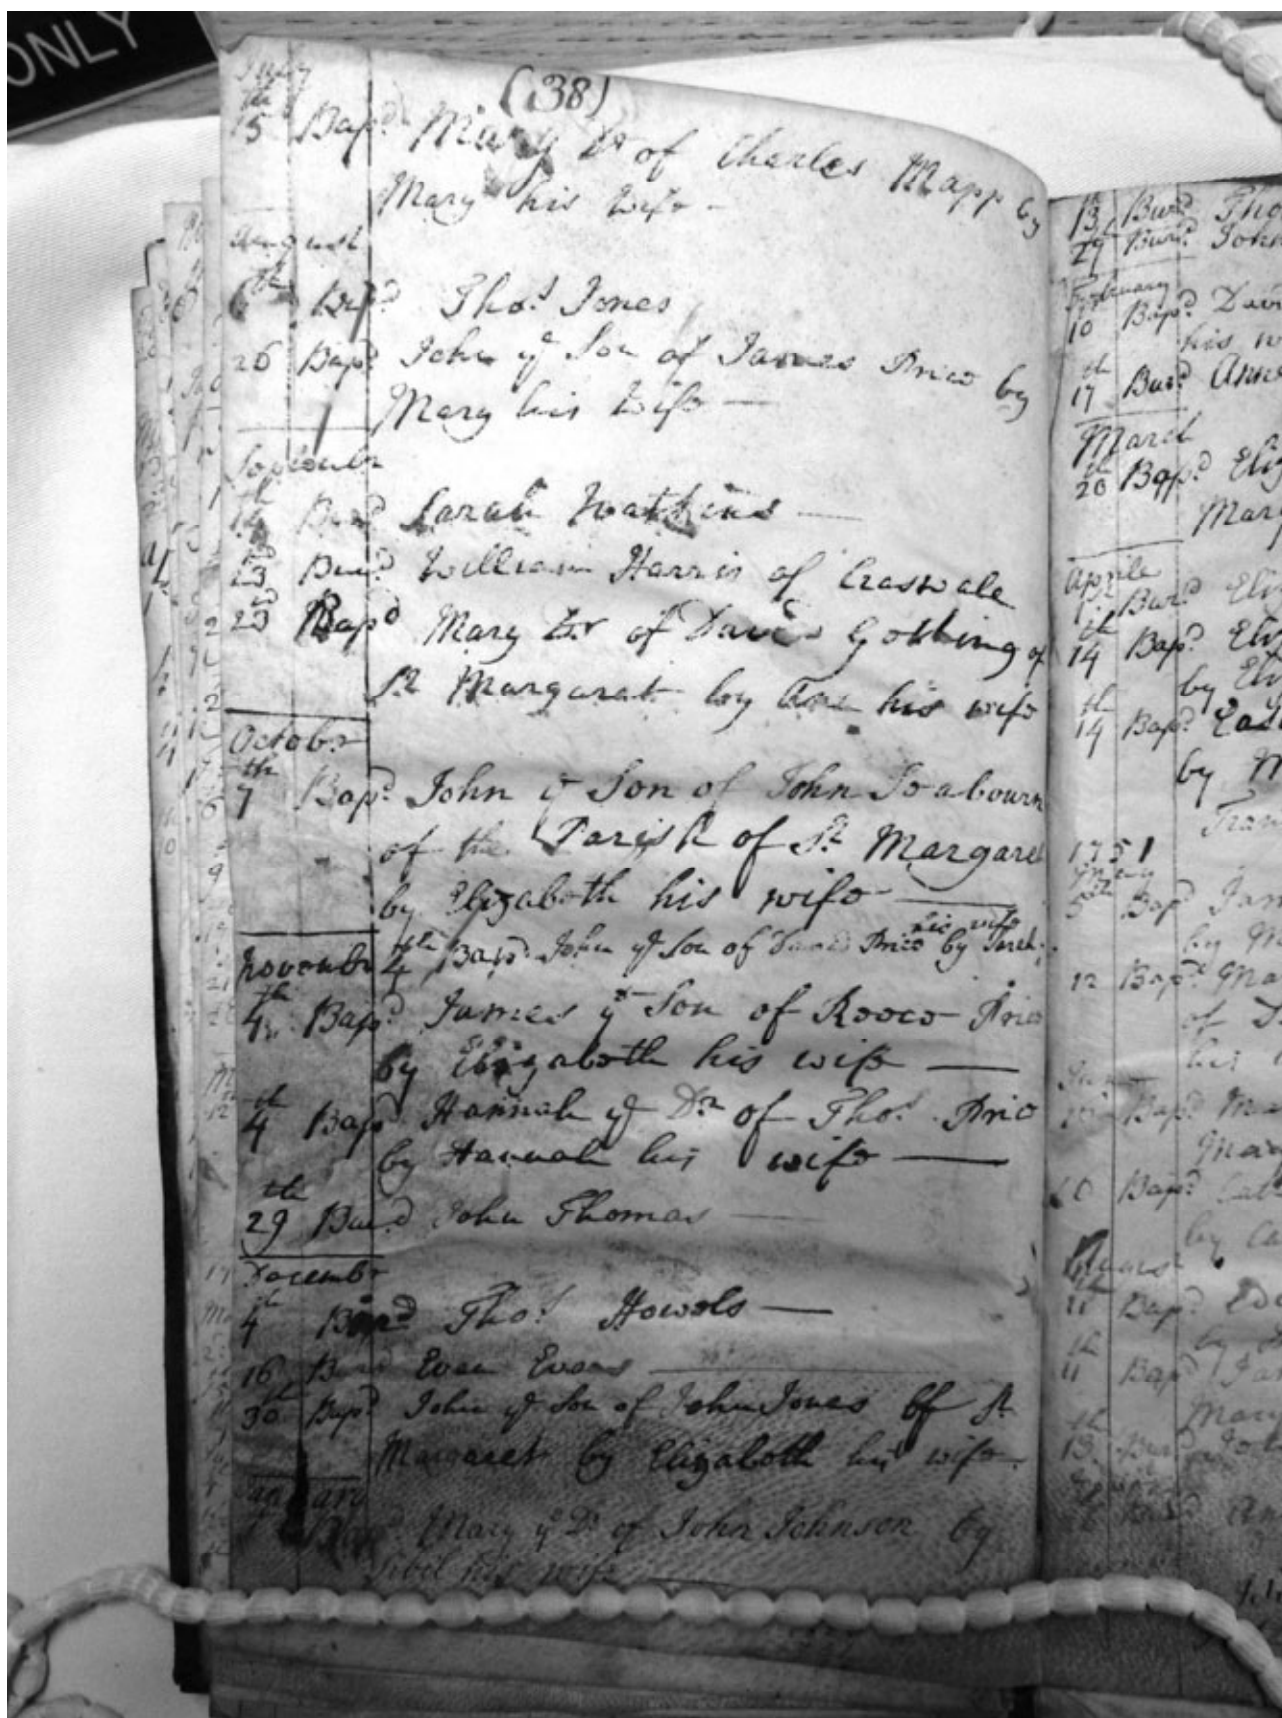 ONLY
(138)
July
th
15 Bapd. Mary Dr of Charles Mapp by
Mary his wife -
August
6th Bapd Thos. Jones
26 Bapd. John ye Son of James Price by
Mary his wife —
Septembr
th
Burd Sarah Watkins —
23 Burd. William Harris of Craswale
23 Bapd Mary Dr of David Gosling of
St Margaret by Ane his wife
Octobr
th
7 Bapd. John ye Son of John Seabourn
of the Parish of St. Margaret
by Elizabeth his wife —
his wife
Novembr 4th Bapd. John ye Son of Price by
th
4 Bapd. James ye Son of Reece Price
by Elizabeth his wife —
th
4 Bapd Hannah ye Dr of Thos. Price
by Hannah his wife —
th
29 Burd John Thomas —
Decembr
th
4 Thos. Howels —
16 Burd Evan Evans —
th
30 Bapd John ye Son of John Jones of St.
Margaret by Elizabeth his wife.
January
Bapd. Mary ye Dr of John Johnson by
Sibil his wife —
13 Burd. Tho
29 Burd. John
February
10 Bapd. Davi
his w
th
17 Burd. Anne
March
th
20 Bapd. Eliz
Marg
Aprile
Burd. Eliz
th
14 Bapd. Eliz
by Eli
th
14 Bapd.
by M
1751
May
5th Bapd Jam
by M
12 Bapd. Ma
of
his
Bapd. Ma
Mary
Bapd.
by Ca
August
th
11 Bapd.
th
11 Bapd. Jan
Mary
th
13 Burd